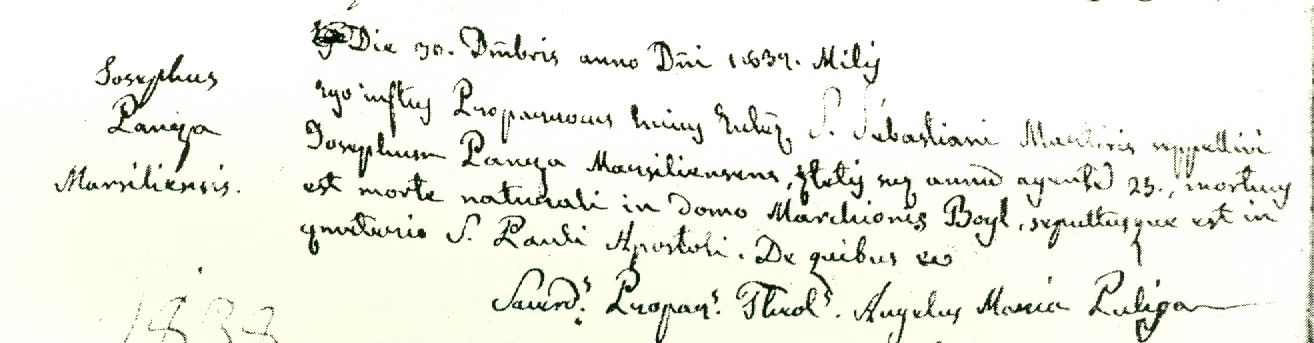 Josephus
Panga
Marsiliensis.
Die 30. Dm̄bris anno Dn̄i 1837. Milis
Ego inftus Proparrocus hujus Eccłę S. Sebastiani Martiris seppellivi
Josephum Panga Marsiliensem, ętatis suę annū agentē 25., mortuus
est morte naturali in domo Marchionis Boyl, sepultusque est in
cęmeterio S. Pauli Apostoli. De quibus
Sacerds. Propars. Theols. Angelus Maria Puliga
1838